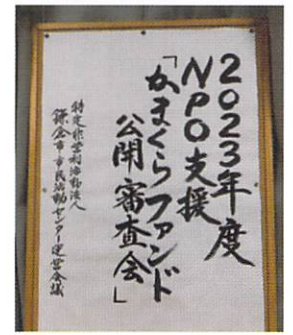 2023年度
NPO支援
「かまくらファンド
公開審査会」
特定非営利活動法人
鎌倉市市民活動センター運営会議